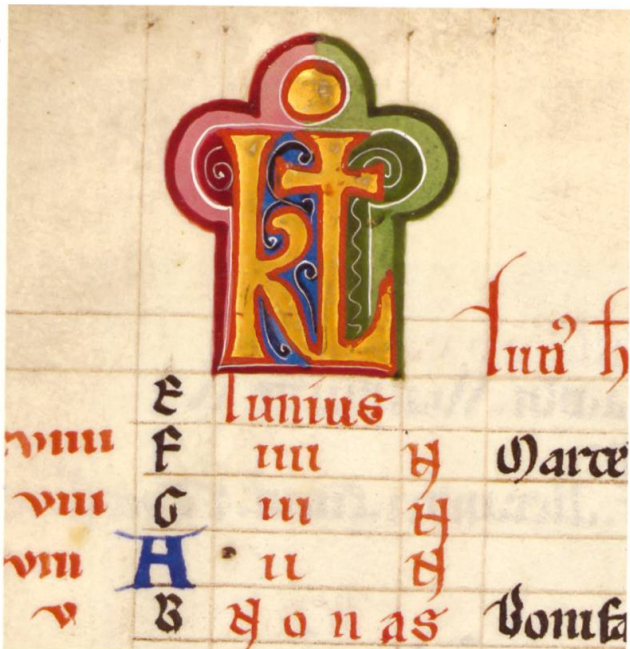 KL
Iuni⁹ h
E Iunius
F iiii N Marce
viii G iii N
A ii N
v B Nonas Bonifa